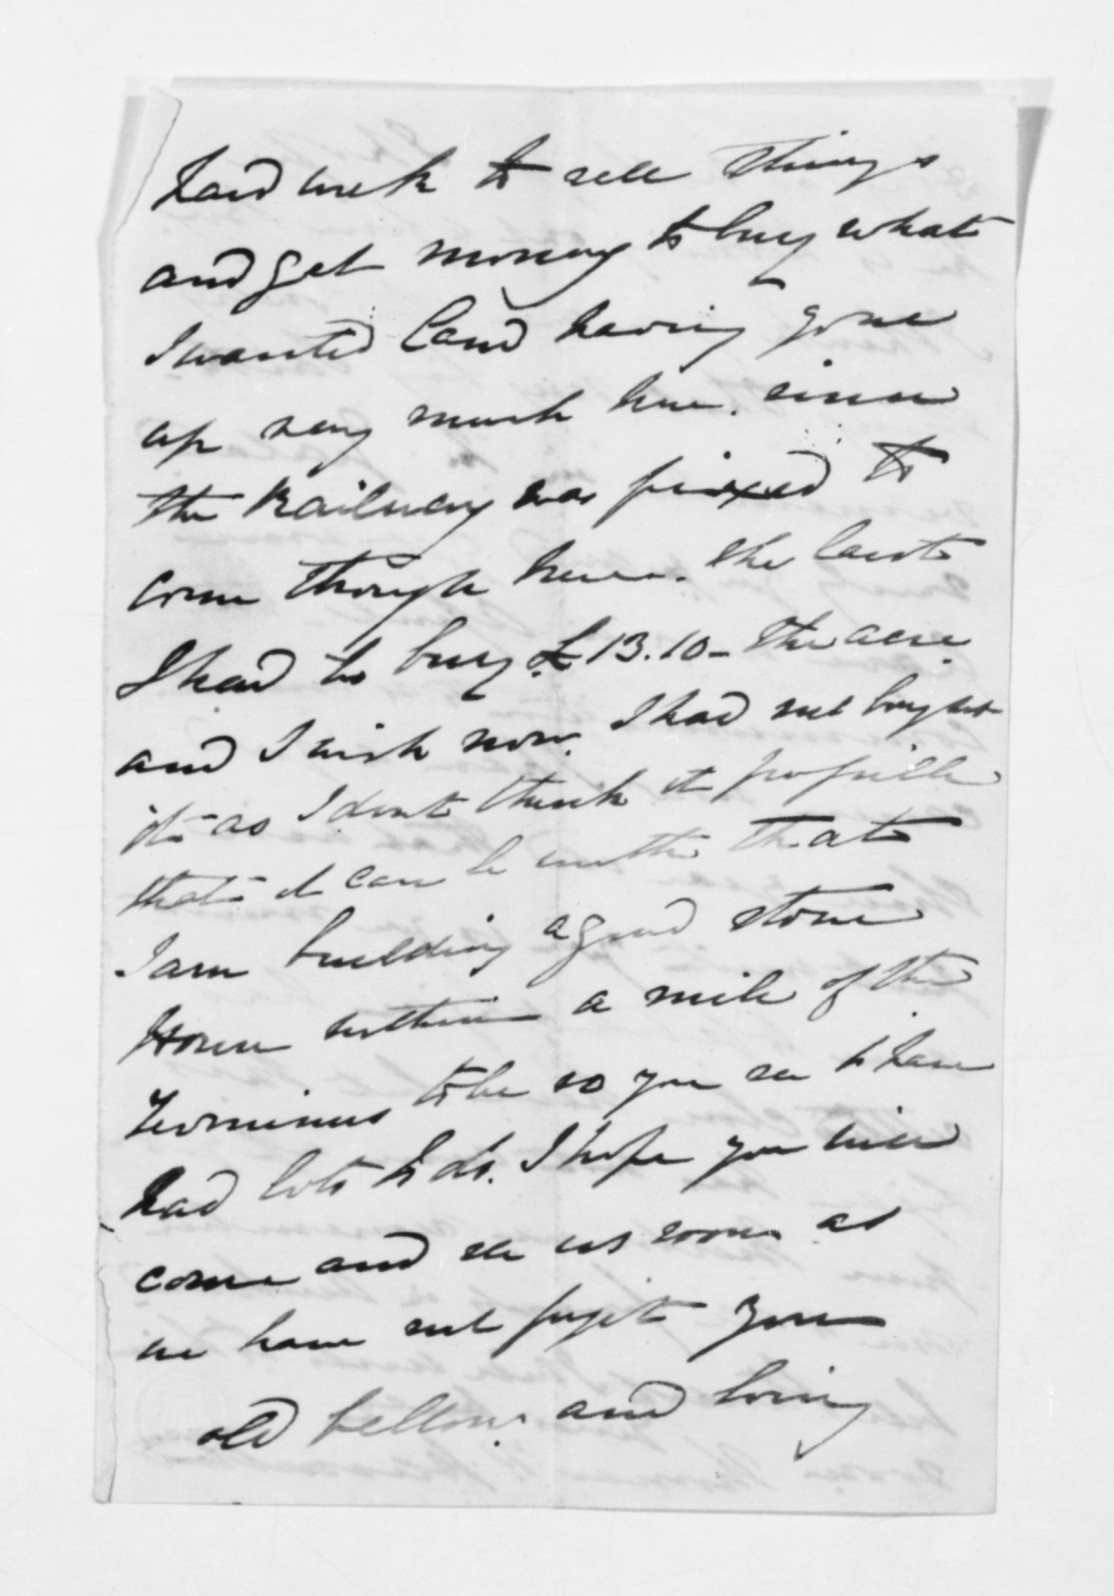 hard work to sell things
and get money to buy what
I wanted Land having gone
up very much here. since
the Railway was fixed to
come though here. the last
I had to buy £13.10- the acre
and I wish now. I had not bought
it as I dont think it possible
that it can be worth that
I am building a good stone
House within a mile of the
Terminus to be so you see I have
had lots to do. I hope you will
come and see us soon as
we have not forgot you
old fellow. and loving